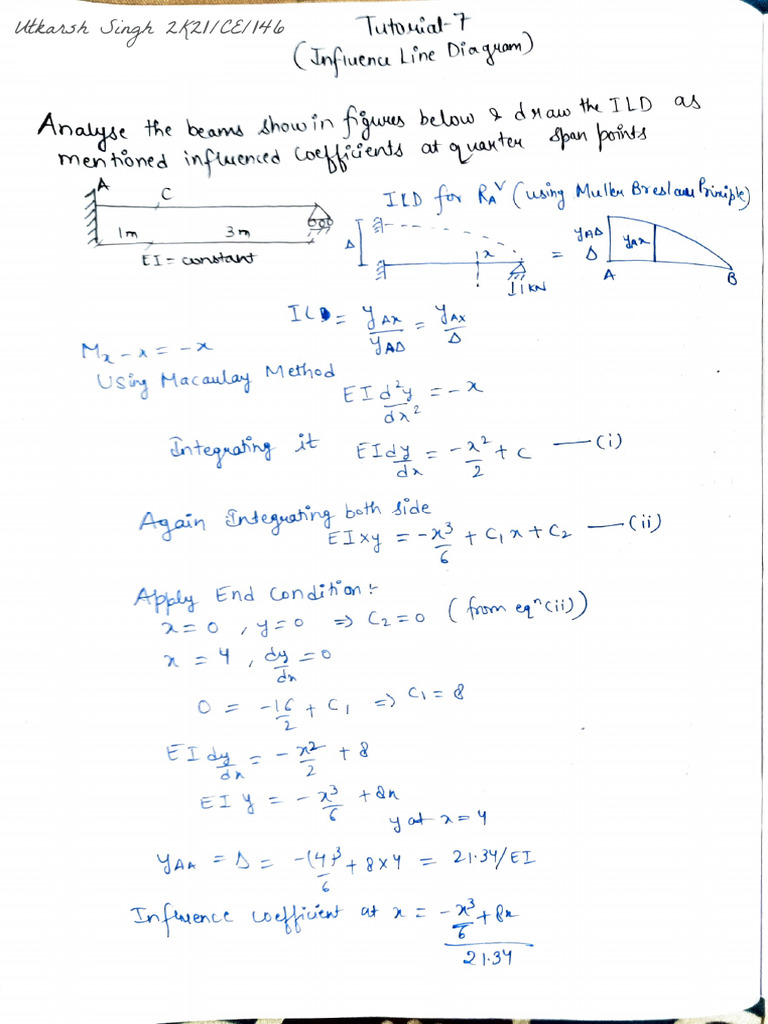 Utkarsh Singh 2K21/CE/146
Tutorial-7
(Influence Line Diagram)
Analyse the beams show in figures below & draw the ILD as
mentioned influenced coefficients at quarter span points
A
C
1m
3m
EI = constant
ILD for R_A^V (using Muller Breslau Principle)
Δ
x
1 kN
=
y_AΔ
Δ
y_Ax
A
B
ILD = y_Ax/y_AΔ = y_Ax/Δ
M_x - x = -x
Using Macaulay Method
EI d²y/dx² = -x
Integrating it EI dy/dx = -x²/2 + C —(i)
Again Integrating both side
EI×y = -x³/6 + C₁x + C₂ —(ii)
Apply End Condition:-
x = 0 , y = 0 ⇒ C₂ = 0 (from eqⁿ (ii))
x = 4 , dy/dx = 0
0 = -16/2 + C₁ ⇒ C₁ = 8
EI dy/dx = -x²/2 + 8
EI y = -x³/6 + 8x
y at x = 4
y_AA = Δ = -(4)³/6 + 8×4 = 21.34/EI
Influence coefficient at x = (-x³/6 + 8x)/21.34